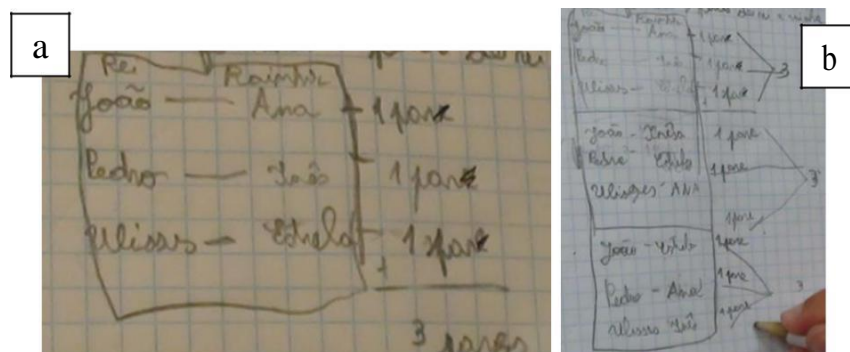 a
Rei Rainha
João — Ana — 1 par
Pedro — Inês 1 par
Ulisses — Estrela — 1 par
3 pares
b
João — Ana — 1 par
Pedro — Inês 1 par
Ulisses — 1 par
3
João - Inês 1 par
Pedro - Estrela 1 par
Ulisses - ANA
1 par
3
João - 1 par
Pedro - Ana 1 par
Ulisses Inês 1 par
3